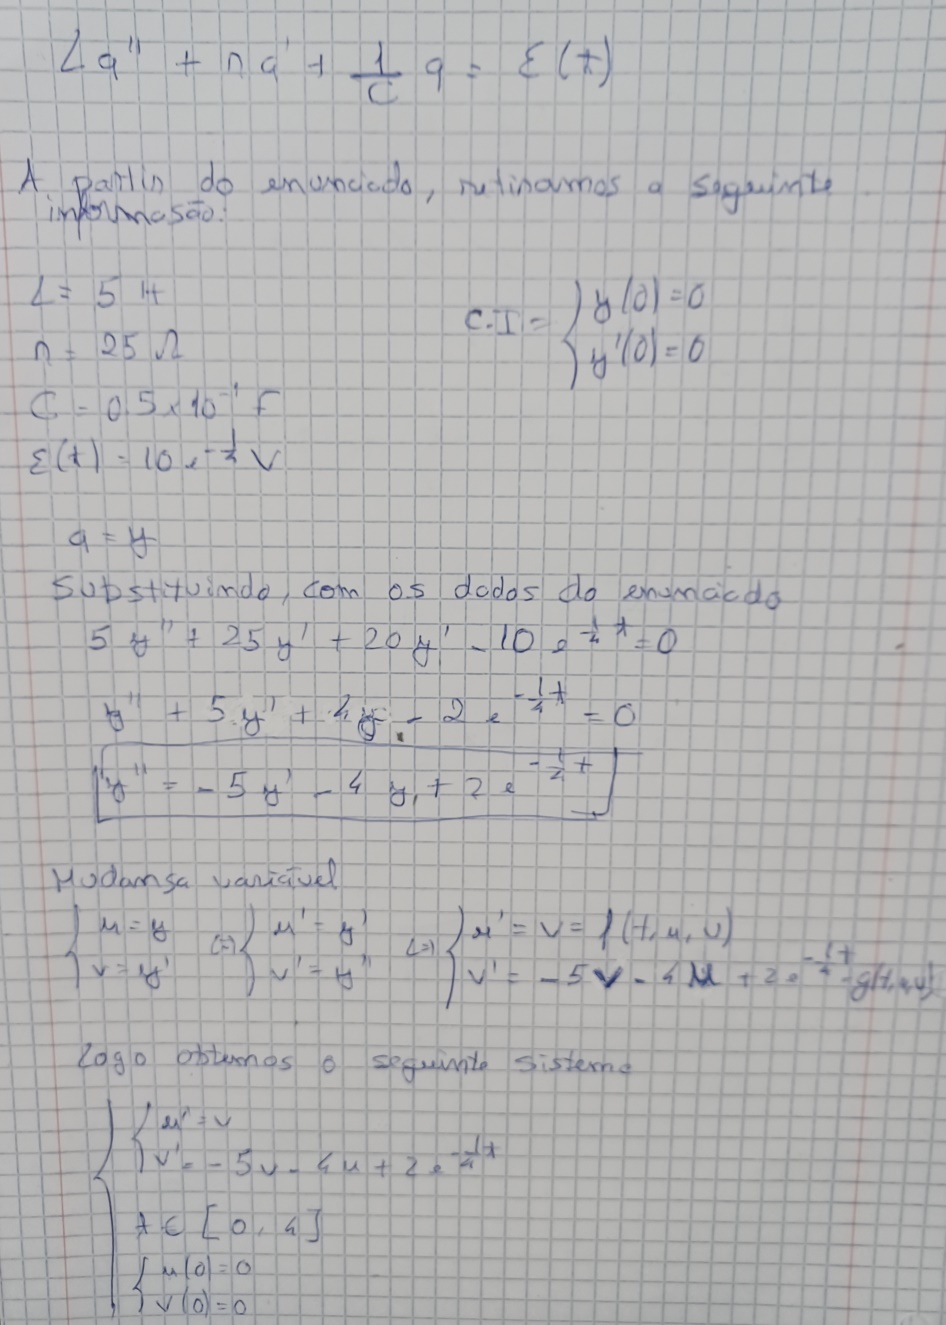 Lq'' + rq' + 1/C q = ε(t)
A partir do enunciado, retiramos a seguinte
informasão:
L = 5 H
r = 25 Ω
C = 0,5 x 10^-1 F
ε(t) = 10 e^-1/4 V
C.I = { y(0) = 0
y'(0) = 0
q = y
Substituindo, com os dados do enunciado
5y'' + 25y' + 20y' - 10 e^-1/4 t = 0
y'' + 5y' + 4y - 2 e^-1/4 t = 0
y'' = -5y' - 4y + 2 e^-1/4 t
Mudansa variável
{ u = y (=) { u' = y' (=) { u' = v = f(t, u, v)
v = y' v' = y'' v' = -5v - 4u + 2e^-1/4 t = g(t,u,v)
Logo obtemos o seguinte sistema
{ { u' = v
v' = -5v - 4u + 2e^-1/4 t
t ∈ [0, 4]
{ u(0) = 0
v(0) = 0